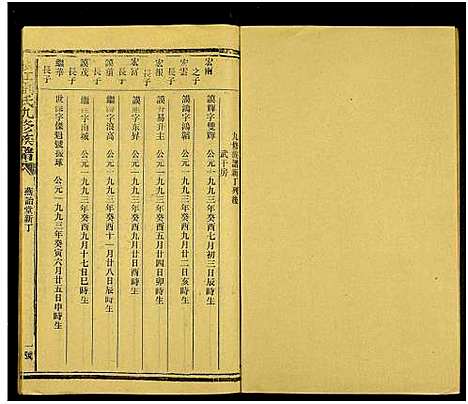 九修族譜新丁列後
武干房
宏兩之子 謨輝字雙輝 公元一九九三年癸酉七月初三日辰時生
宏雲長子 謨鴻字鴻韜 公元一九九三年癸酉九月廿二日亥時生
宏報長子 易升主 公元一九九三年癸酉五月廿四日卯時生
宏富長子 謨 字东昇 公元一九九三年癸酉九月廿日酉時生
謨前長子 繼 字浪高 公元一九九三年癸酉十一月廿八日辰時生
謨茂長子 繼 字海城 公元一九九三年癸酉九月十七日巳時生
繼華長子 世 字 號振球 公元一九九三年癸寅六月廿五日申時生
氏九修族譜
燕詒堂新丁
一號